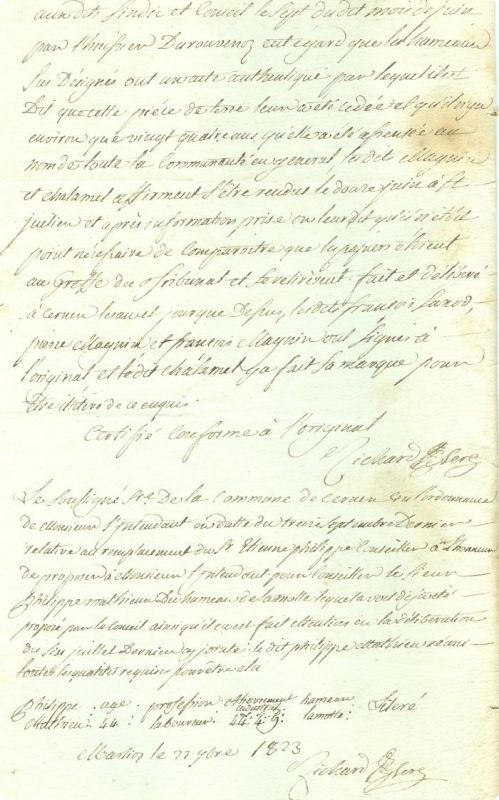 aux dits sindic et Conseil le sept du dit mois de juin
par l'huissier Durouvenoz eut égard que les hameaux
sus Designés ont un acte authentique par lequel il est
Dit que cette pièce de terre leur a été cedée et qu'il n'y a
environ que vingt quatre ans qu'elle a été affensée au
nom de toute la Communauté en general les dit Magnin
et Chalamel affirment s'être rendus le douze juin à St
julien et après information prise on leur dit qu'il n'étoit
point nécessaire de Comparoitre que les papiers étoient
au Greffe du Tribunal et se retirèrent fait et délivré
à Cernex les an et jour que Dessus, les dits françois Saxod,
pierre Magnin et françois Magnin ont signés à
l'original et le dit Chalamel y a fait sa marque pour
être illitéré de ce enquis
Certifié Conforme à l'original
Richard Sere
Le Soussigné Sre. De la Commune de Cernex Vu l'ordonnance
de Monsieur l'Intendant en datte du treize Septembre Dernier
relative au remplacement du Sr Etienne philippe Conseiller à l'honneur
de proposer à Monsieur l'Intendant pour Conseiller le Sieur
philippe mathieu Du hameau de Lamotte lequel avoit déja été
proposé par le Conseil ainsi qu'il en est fait mention en la délibération
du Six juillet Dernier cy jointe: le dit philippe Mathieu réuni
toutes les qualités requises pour être elu
philippe . age . profession hameau Literé
Mathieu : 44 : laboureur : 44: 4: 9: lamotte:
le 22 9bre 1823
Richard Sere